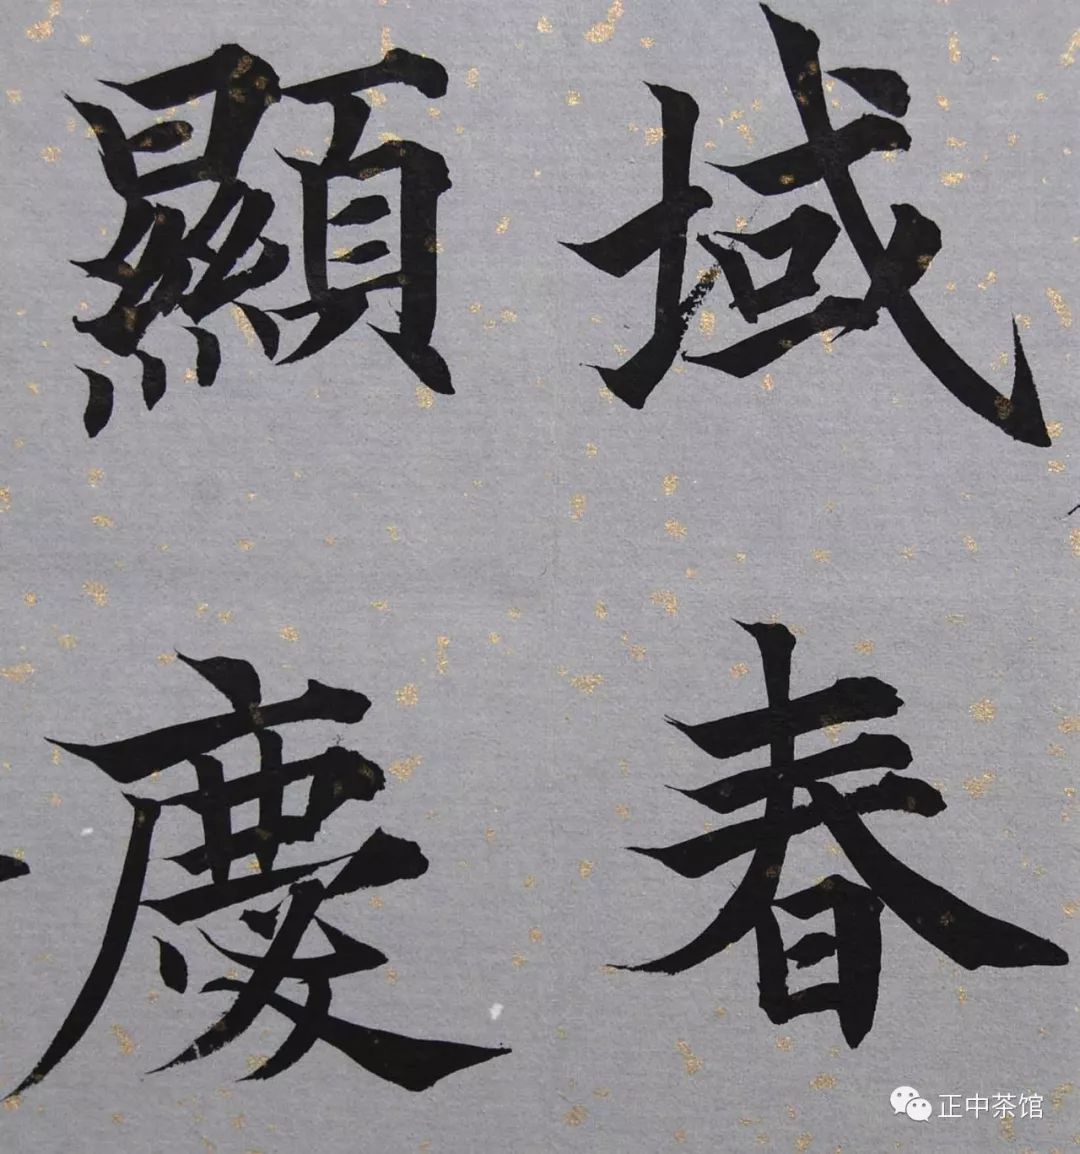 域春
顯慶
正中茶馆